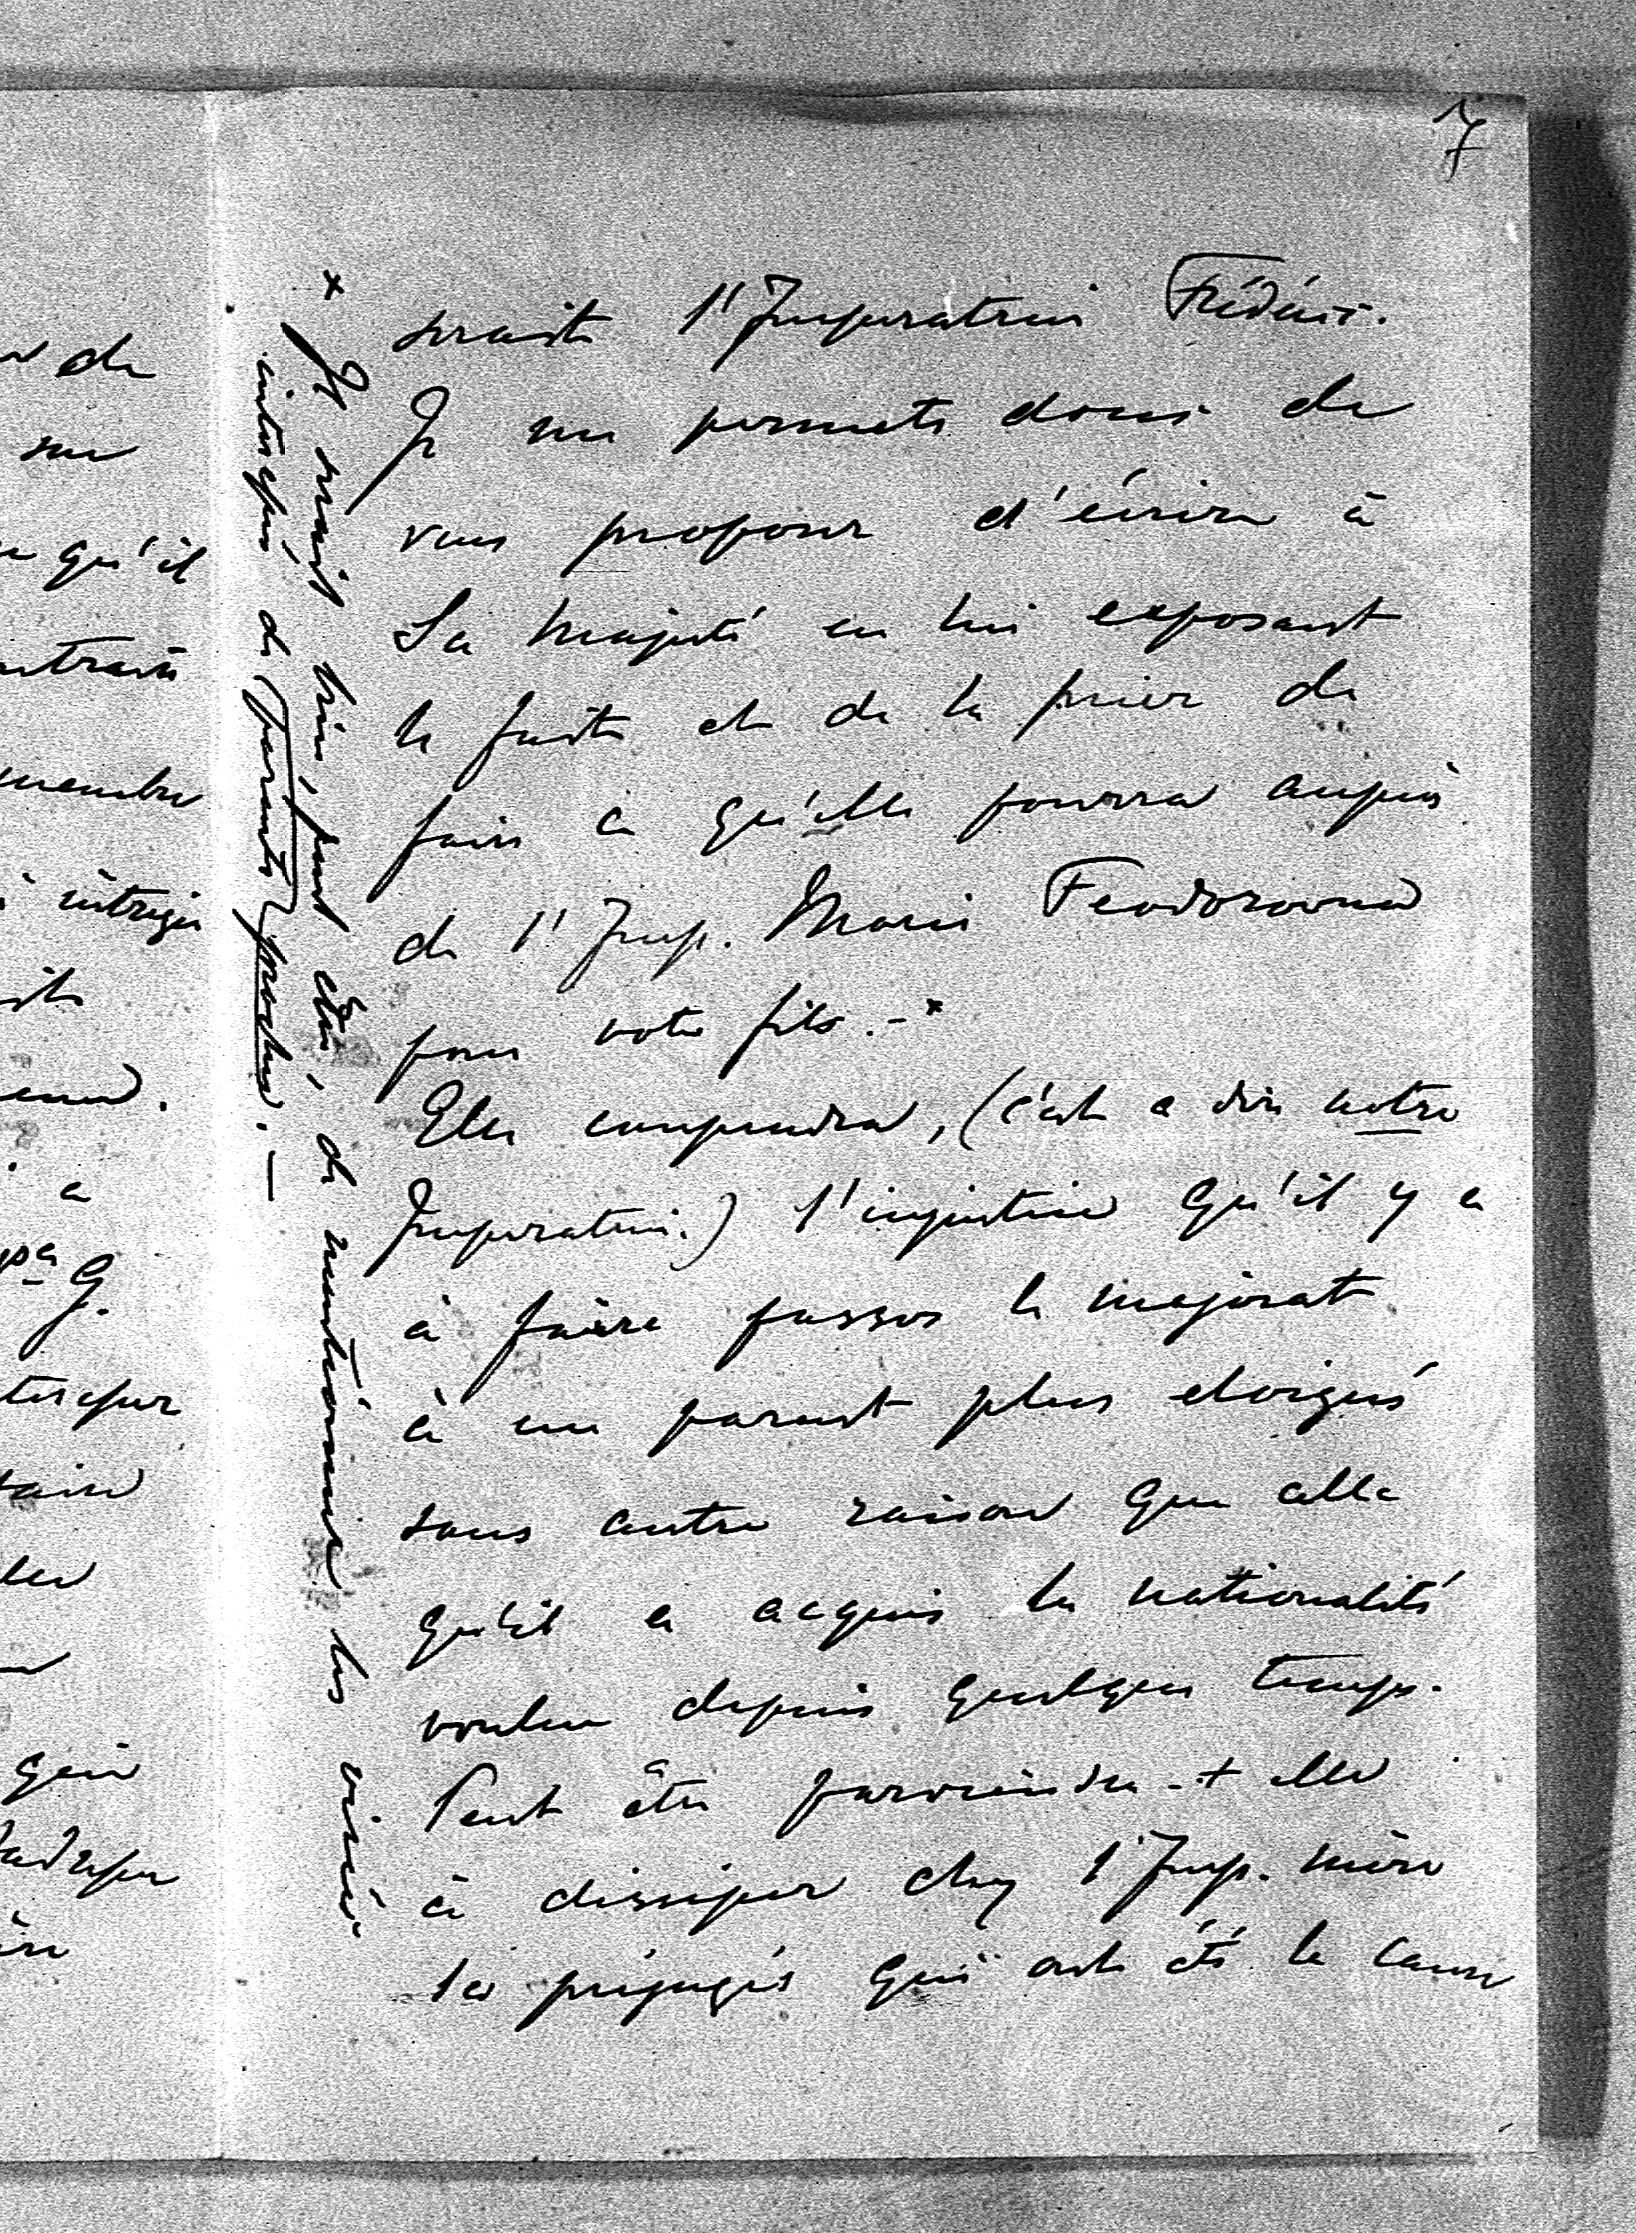 7
serait l'Imperatrice Frédéric.
Je me permets donc de
vous proposer d'écrire à
Sa Majesté en lui exposant
le fait et de la prier de
faire ce qu'elle pourra auprès
de l'Imp. Marie Feodorovna
pour votre fils.-*
Elle comprendra, (c'est a dire notre
Imperatrice.) l'injustice qu'il y a
à faire passer le majorat
à un parent plus eloigné
sans autre raison que celle
qu'il a acquis la nationalité
voulue depuis quelque temps.
Peut être parviendra-t-elle
à dissiper chez l'Imp. mère
les préjugés qui ont été la cause
* Il serait bien, peut être, de mentionner les
interessés de parents proches. —
de
sur
qu'il
membre
intrigue
a
G.
qui